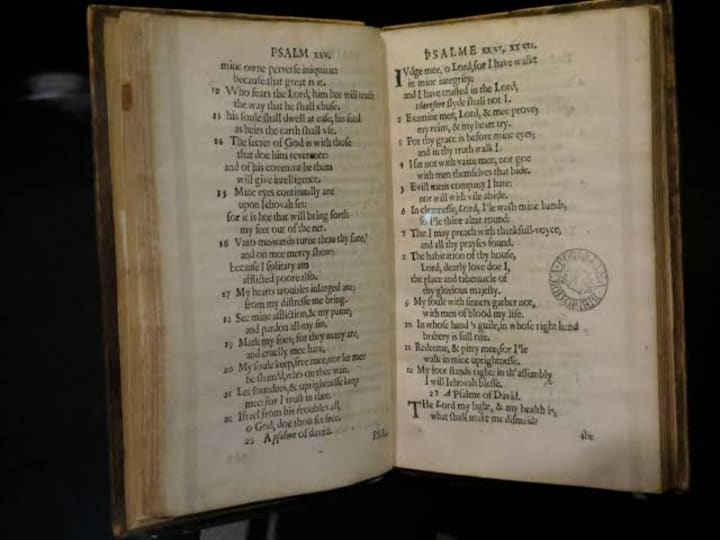 PSALM xxv.
mine owne perverse iniquitie:
because that great it is.
12 Who fears the Lord, him hee will teach
the way that he shall chuse.
13 his soule shall dwell at ease, his seed
as heirs the earth shall use.
14 The secret of God is with those
that doe him reverence:
and of his covenant he them
will give intelligence.
15 Mine eyes continually are
upon Iehovah set:
for it is hee that will bring forth
my feet out of the net.
16 Vnto me-wards turne thou thy face,
and on mee mercy show:
because I solitary am
afflicted poore also.
17 My hearts troubles inlarged are;
from my distresse me bring.
18 See mine affliction, & my paine;
and pardon all my sin.
19 Mark my foes; for they many are,
and cruelly mee hate.
20 My soule keep, free mee; nor let mee
be sham'd, who on thee wait.
21 Let soundnes, & uprightnesse keep
mee: for I trust in thee.
22 Israel from his troubles all,
o God, doe thou set free.
A Psalme of david.
PSALME xxvi, xxvii.
IVdge mee, o Lord, for I have walkt
in mine integrity:
and I have trusted in the Lord,
therefore slyde shall not I.
2 Examine mee, Lord, & mee prove;
my reins, & my heart try.
3 For thy grace is before mine eyes;
and in thy truth walk I.
4 I sat not with vaine men, nor goe
with men themselves that hide.
5 Evill mens company I hate:
nor will with vile abide.
6 In cleannesse, Lord, I'le wash mine hands,
so I'le thine altar round:
7 That I may preach with thankfull-voyce,
and all thy prayses sound.
8 The habitation of thy house,
Lord, dearly love doe I,
the place and tabernacle of
thy glorious majesty.
9 My soule with sinners gather not,
with men of blood my life.
10 In whose hand's guile, in whose right hand
bribery is full rife.
11 Redeeme, & pitty mee; for I'le
walk in mine uprightnesse.
12 My foot stands right: in th' assembly
I will Iehovah blesse.
27 A Psalme of David.
THe Lord my light, & my health is,
what shall make me dismaid?